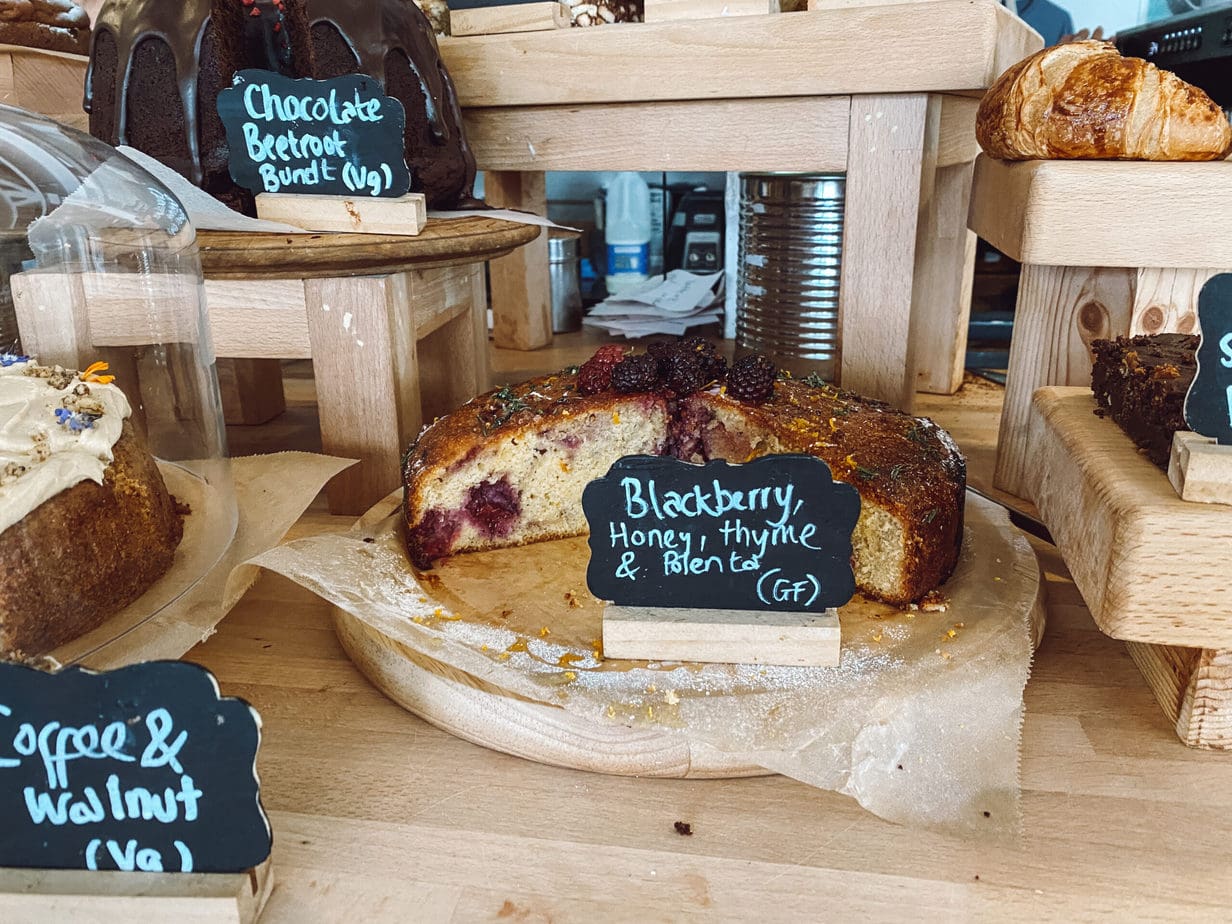 Chocolate
Beetroot
Bundt (Vg)
Blackberry,
Honey, thyme
& Polenta
(GF)
Coffee &
Walnut
(Vg)
S